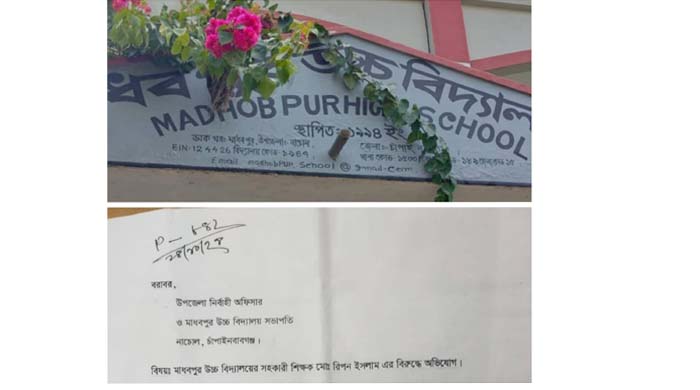 ধবপুর উচ্চ বিদ্যাল
MADHOBPUR HIGH SCHOOL
স্থাপিত: ১৯৯৪ ইং
ডাক ঘর: মাধবপুর, উপজেলা: নাচোল, জেলা:- চাঁপাই
EIN: 124426 বিদ্যালয় কোড
Email. School@gmail.com
P- 682
বরাবর,
উপজেলা নির্বাহী অফিসার
ও মাধবপুর উচ্চ বিদ্যালয় সভাপতি
নাচোল, চাঁপাইনবাবগঞ্জ।
বিষয়ঃ মাধবপুর উচ্চ বিদ্যালয়ের সহকারী শিক্ষক মোঃ রিপন ইসলাম এর বিরুদ্ধে অভিযোগ।